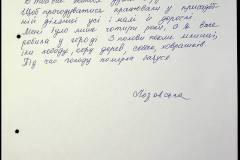 Щоб прогодуватися працювали у присадиб-
ній ділянці усі і малі й дорослі
Мені було лише чотири роки, а я вже
робила у городі. З полови пекли млинці,
їли лободу, кору дерев, собак, ховрашків.
Під час голоду померла бабуся.
Лозовська